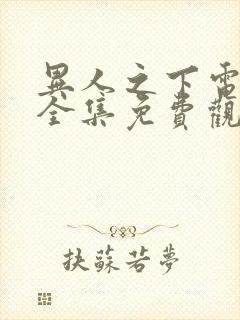 異人之下電
全集免費觀
扶蘇若夢